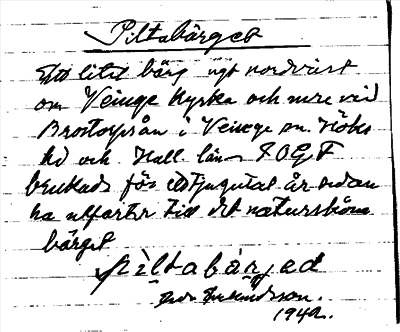 Piltabärget
Ett litet bärg ngt nordväst
om Veinge Kyrka och mre vid
Brostorpsån i Veinge sn. Höks
hd och Hall. län I.O.G.T
brukade för ett tjugutal år sedan
ha utfarter till det naturskönа
bärget
piltabärjed
1942.